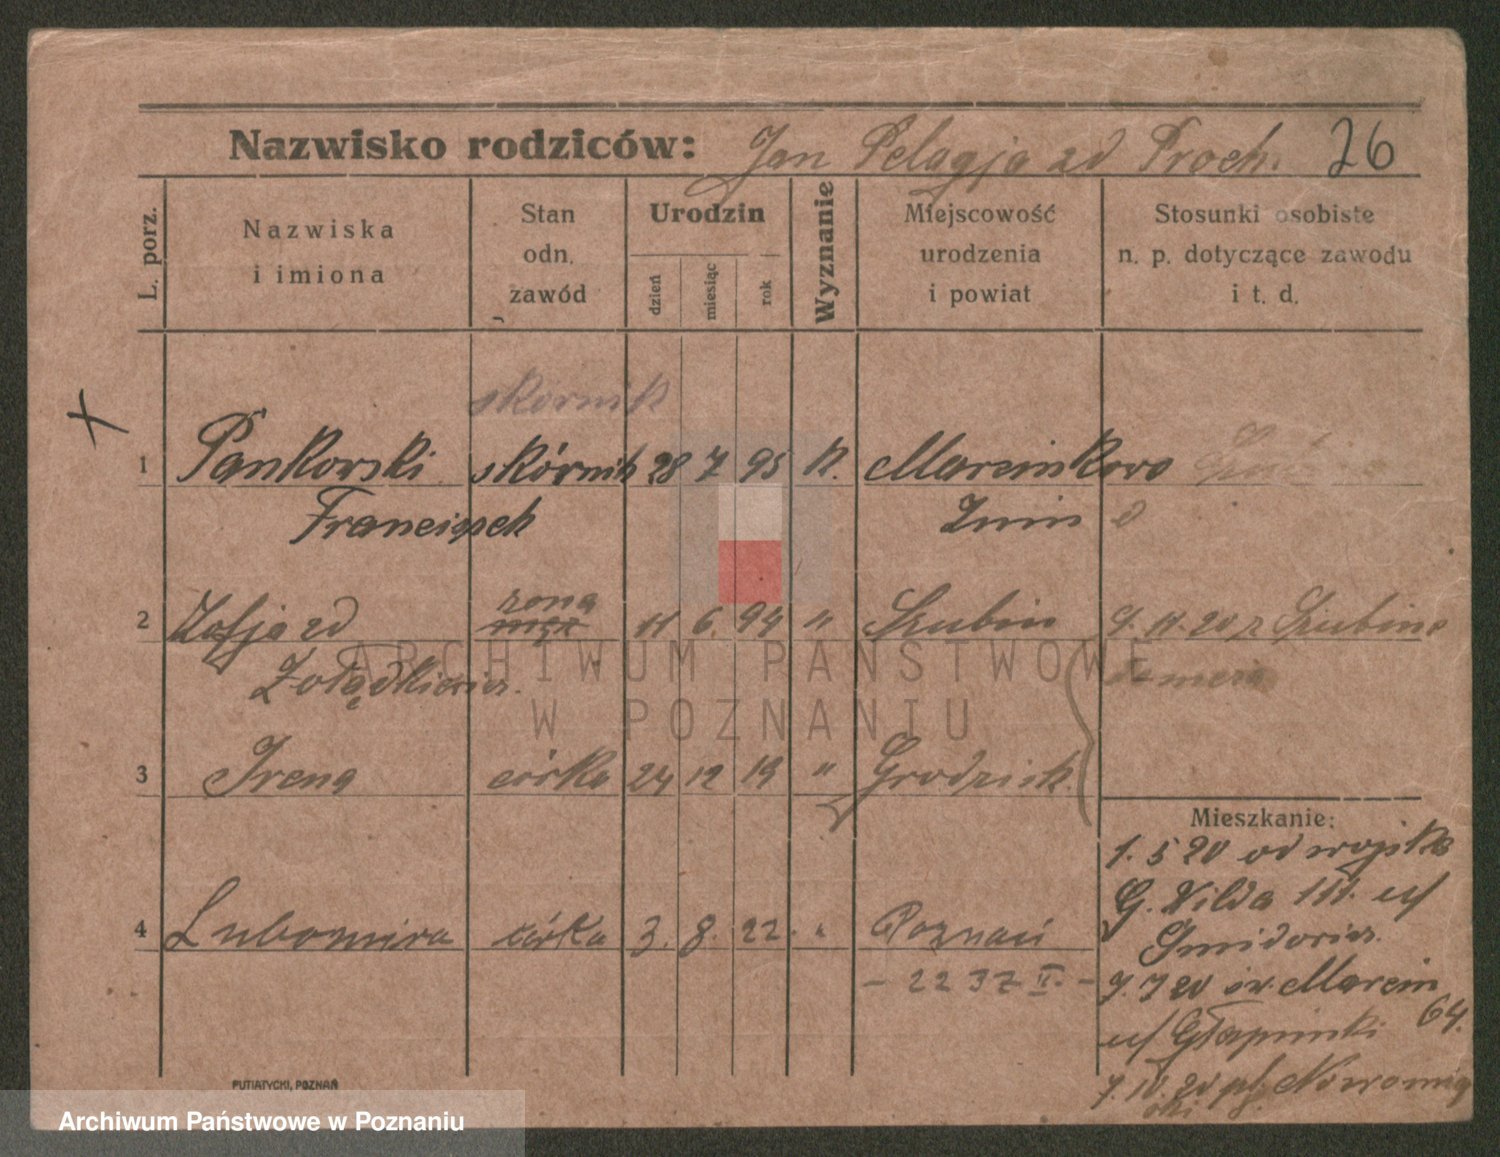 Nazwisko rodziców: Jan Pelagja zd Proch. 26
L. porz.
Nazwiska i imiona
Stan odn. zawód
Urodzin
dzień
miesiąc
rok
Wyznanie
Miejscowość urodzenia i powiat
Stosunki osobiste n. p. dotyczące zawodu i t. d.
skórnik
1 Pankowski skórnik 28 7 95 K. Marcinkowo
Franciszek Żnin
2 Zofja zd żona 11 6. 94 " Szubin 9. 11. 20 z Szubina
mąż
Żołądkiewicz.
3 Irena córka 24 12 19 " Grodzisk.
Mieszkanie:
1. 5 20 od wojska
G. Wilda 111. u/
4 Lubomira córka 3. 8. 22. " Poznań
- 22 37 II. -
7. 7 20 św. Marcin
64.
u/
7. IV. 20 pl. Nowomiej
ski
PUTIATYCKI, POZNAŃ
ARCHIWUM PAŃSTWOWE
W POZNANIU
Archiwum Państwowe w Poznaniu